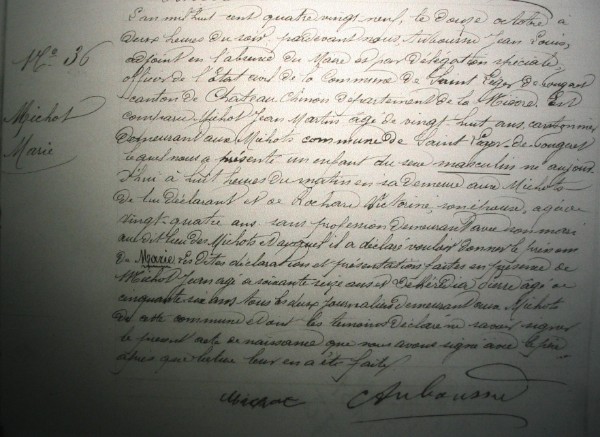 N° 36
Michot
Marie
L'an mil huit cent quatre vingt neuf, le douze octobre à
deux heures du soir, pardevant nous, Aubousson Jean Louis,
adjoint en l'absence du Maire et par délégation spéciale,
officier de l'Etat civil de la Commune de Saint Léger de Fougeret
canton de Château Chinon département de la Nièvre. Est
comparu Michot Jean Martin âgé de vingt huit ans,
demeurant aux Michots commune de Saint Léger de Fougeret
lequel nous a présenté un enfant du sexe masculin né aujour
d'hui à huit heures du matin en sa demeure aux Michots
de lui déclarant et de Rochard Victorine, son épouse, âgée de
vingt-quatre ans sans profession demeurant avec son mari
au dit lieu des Michots et auquel il a déclaré vouloir donner le prénom
de Marie les dites déclarations et présentations faites en présence de
Michot âgé de soixante seize ans et de âgé de
cinquante six ans tous les deux journaliers demeurant aux Michots
de cette commune et dont les témoins déclaré ne savoir signer
le présent acte de naissance que nous avons signé avec le père
après que lecture leur en a été faite
Michot